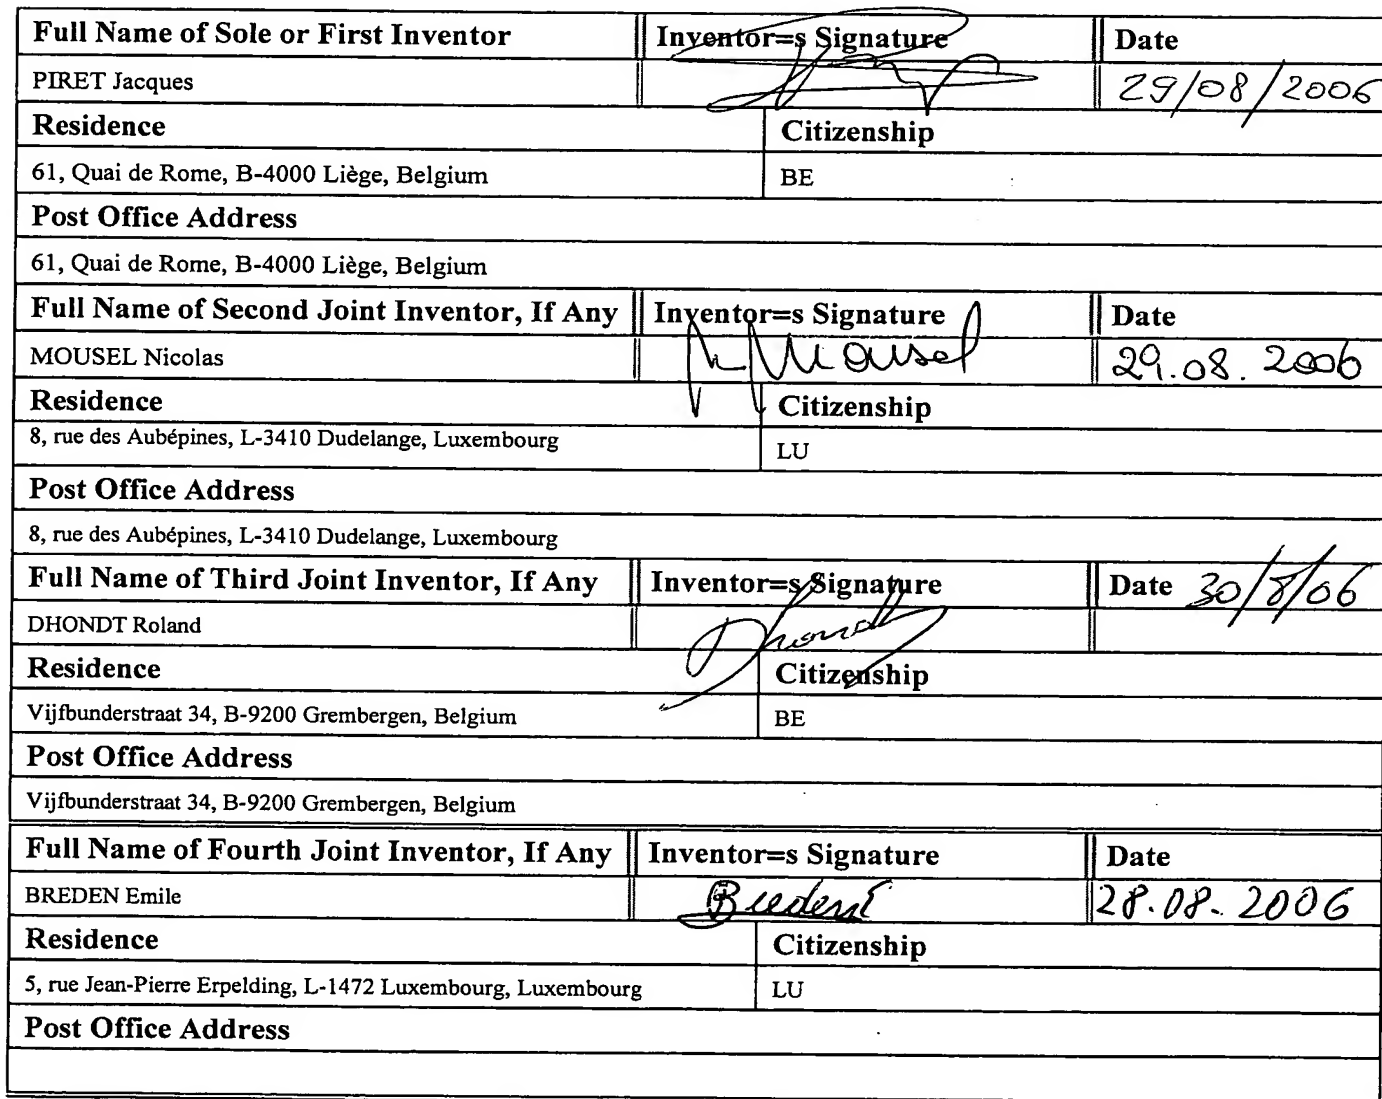 Full Name of Sole or First Inventor Inventor=s Signature Date
PIRET Jacques 29/08/2006
Residence Citizenship
61, Quai de Rome, B-4000 Liège, Belgium BE
Post Office Address
61, Quai de Rome, B-4000 Liège, Belgium
Full Name of Second Joint Inventor, If Any Inventor=s Signature Date
MOUSEL Nicolas Mousel 29.08.2006
Residence Citizenship
8, rue des Aubépines, L-3410 Dudelange, Luxembourg LU
Post Office Address
8, rue des Aubépines, L-3410 Dudelange, Luxembourg
Full Name of Third Joint Inventor, If Any Inventor=s Signature Date 30/8/06
DHONDT Roland Dhondt
Residence Citizenship
Vijfbunderstraat 34, B-9200 Grembergen, Belgium BE
Post Office Address
Vijfbunderstraat 34, B-9200 Grembergen, Belgium
Full Name of Fourth Joint Inventor, If Any Inventor=s Signature Date
BREDEN Emile 28.08.2006
Residence Citizenship
5, rue Jean-Pierre Erpelding, L-1472 Luxembourg, Luxembourg LU
Post Office Address